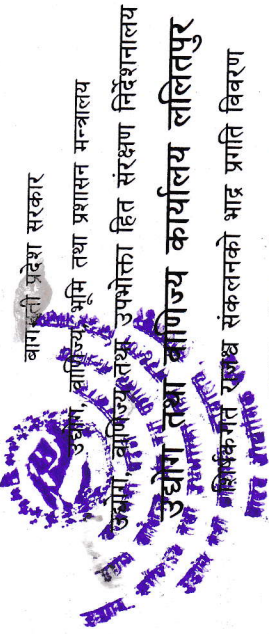 बागमती प्रदेश सरकार
उद्योग, वाणिज्य, भूमि तथा प्रशासन मन्त्रालय
उद्योग, वाणिज्य तथा उपभोक्ता हित संरक्षण निर्देशनालय
उद्योग तथा वाणिज्य कार्यालय ललितपुर
शिर्षकगत राजश्व संकलनको भाद्र प्रगति विवरण